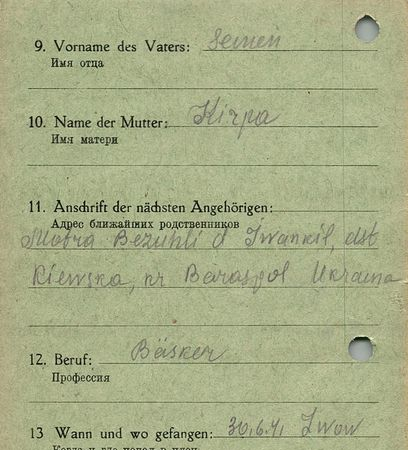 9. Vorname des Vaters: Semen
Имя отца
10. Name der Mutter: Kirpa
Имя матери
11. Anschrift der nächsten Angehörigen:
Адрес ближайших родственников
Motra Bezuhli d Iwankil, dst
Kiewska, nr Baraspol Ukraina
12. Beruf: Bäsker
Профессия
13 Wann und wo gefangen: 30.6.41 Lwow
Когда и где попал в плен